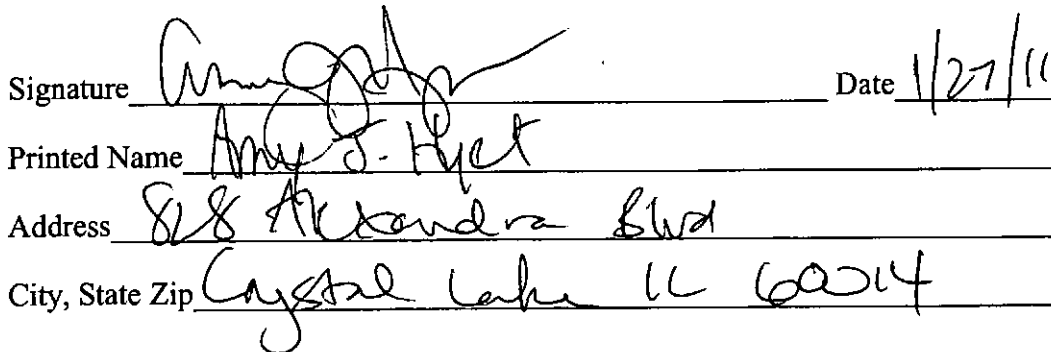 Signature Date 1/27/10
Printed Name Amy J. Hyct
Address 828 Alexandra Blvd
City, State Zip Crystal Lake IL 60014